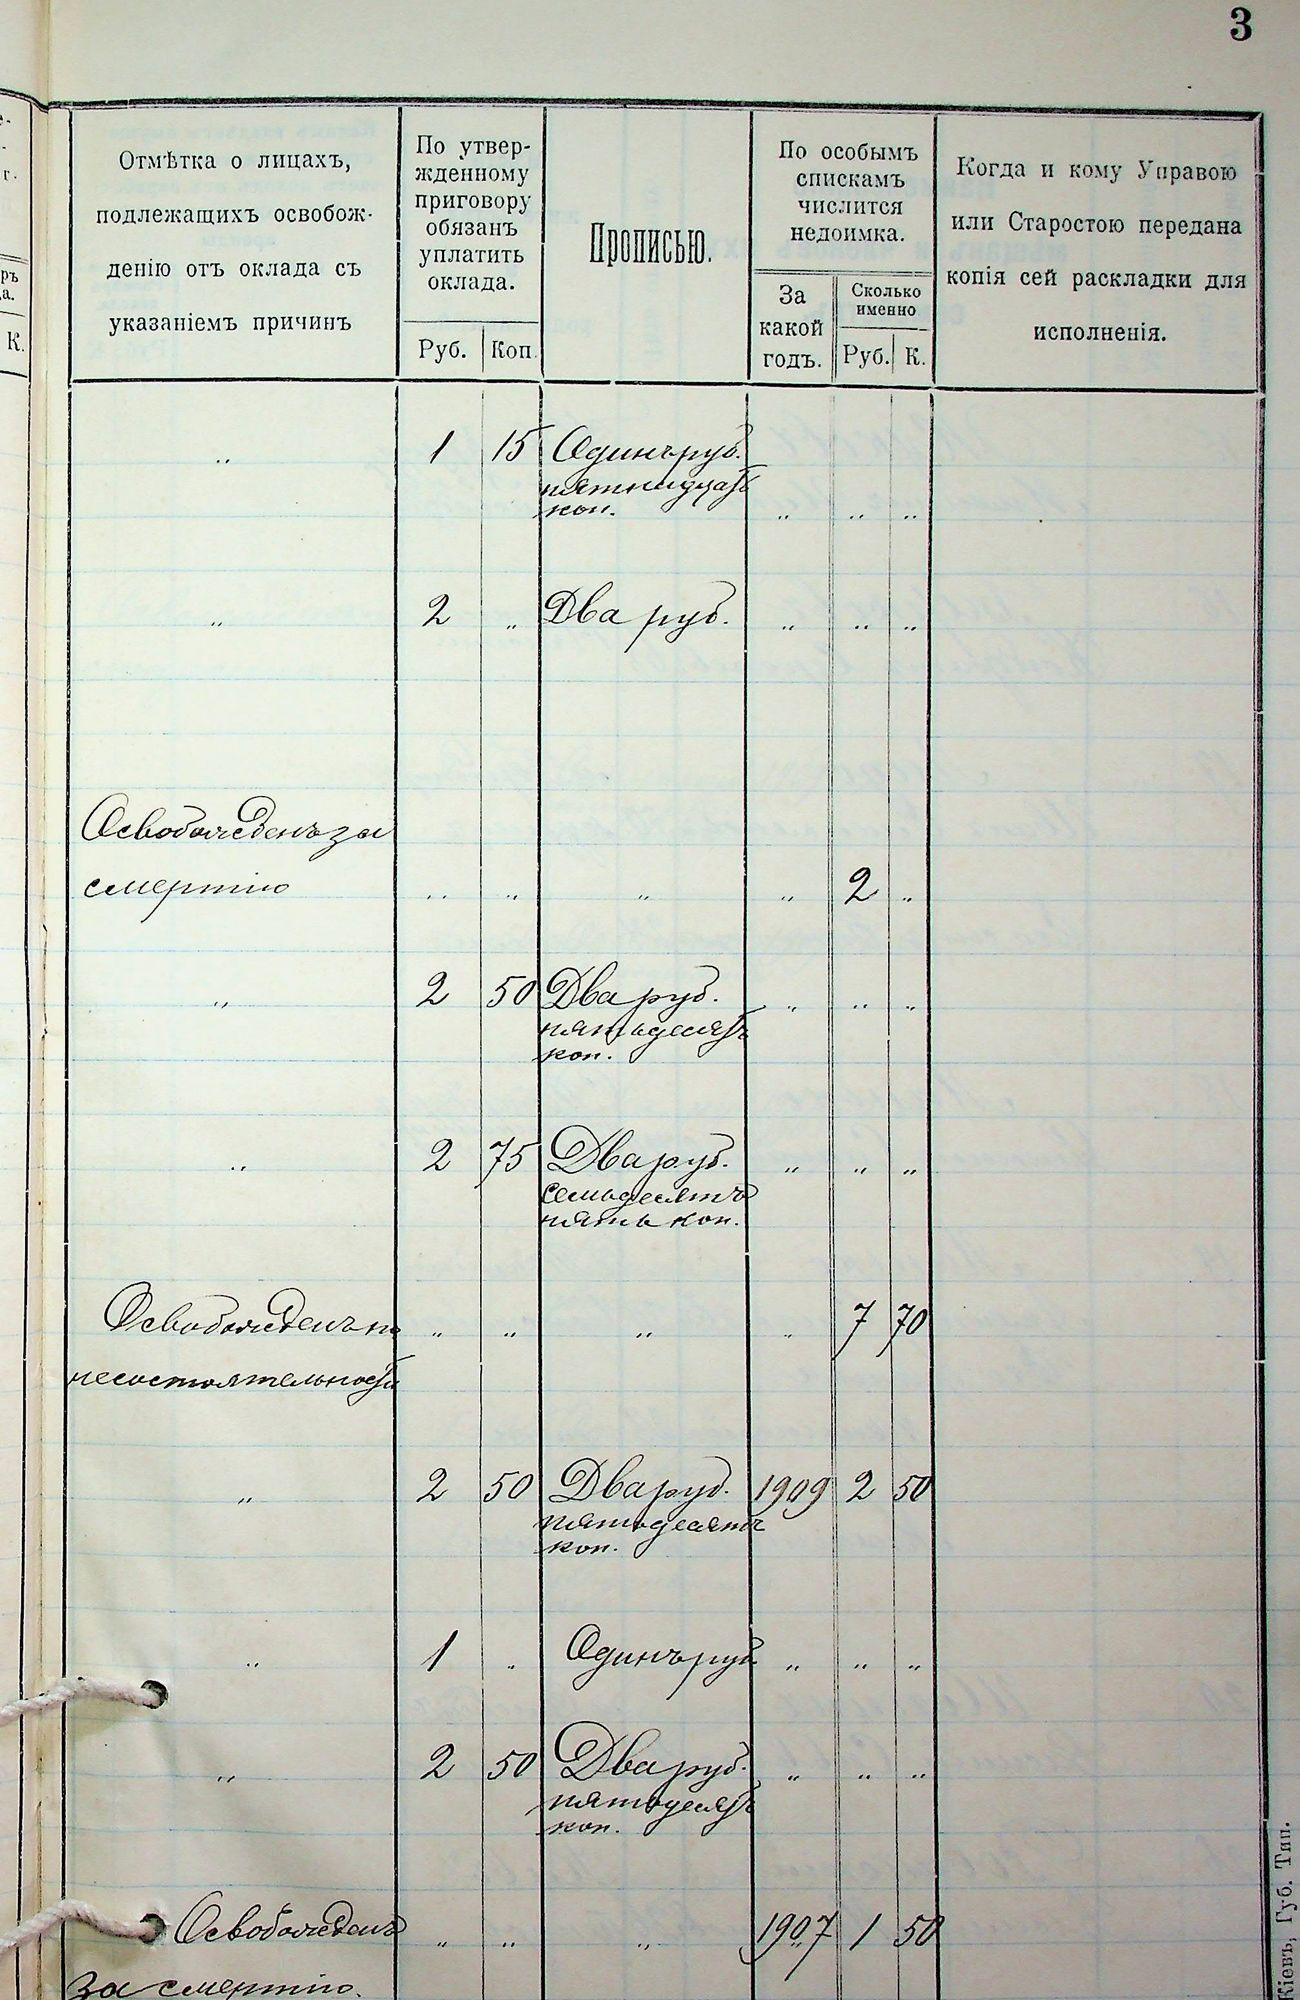 3
е-
г.
ръ
а.
К.
Отмѣтка о лицахъ,
подлежащихъ освобож-
денію отъ оклада съ
указаніемъ причинъ
По утвер-
жденному
приговору
обязанъ
уплатить
оклада.
Руб.
Коп.
Прописью.
По особымъ
спискамъ
числится
недоимка.
За
какой
годъ.
Сколько
именно
Руб.
К.
Когда и кому Управою
или Старостою передана
копія сей раскладки для
исполненія.
„ 1 15 Одинъ руб.
пятнадцать
коп. „ „ „
„ 2 „ Два руб. „ „ „
Освобожденъ за
смертію „ „ „ „ 2 „
„ 2 50 Два руб. „ „ „
пятьдесятъ
коп.
„ 2 75 Два руб. „ „ „
семьдесятъ
пять коп.
Освобожденъ по „ „ „ „ 7 70
несостоятельности
„ 2 50 Два руб. 1909 2 50
пятьдесятъ
коп.
„ 1 „ Одинъ руб. „ „ „
„ 2 50 Два руб. „ „ „
пятьдесятъ
коп.
Освобожденъ „ „ „ 1907 1 50
за смертію.
Кіевъ, Губ. Тип.